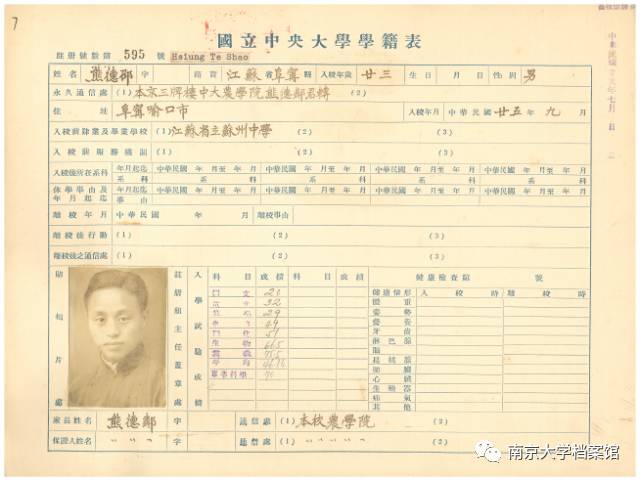 7
國立中央大學學籍表
註冊號數第 595 號 Hsiung Te Shao
姓名 熊德邵 字 籍貫 江蘇省阜寧縣 入校年歲 廿三 生日 月 日 性別 男
永久通信處 (1)本京三牌樓中大農學院熊德鄰君轉 (2)
住址 阜寧喻口市 入校年月 中華民國 廿五年九月
入校前肄業及畢業學校 (1)江蘇省立蘇州中學 (2)
入校前服務機關 (1) (2)
入校後所在系科 年月起迄 中華民國 年 月至 年 月 中華民國 年 月至 年 月 中華民國 年 月至 年 月 中華民國 年 月至 年 月
系科 系科 系科 系科
休學事由及年月起迄 年月起迄 中華民國 年 月至 年 月 中華民國 年 月至 年 月 中華民國 年 月至 年 月 中華民國 年 月至 年 月
事由
離校年月 中華民國 年 月 離校事由
離校後行動 (1) (2) (3)
離校後之通信處 (1) (2) (3)
貼相片處
註冊組主任蓋章處
入學試驗成績
科目 成績 科目 成績
健康檢查紀 號
健康情形 入校時 離校時
體重
姿勢
營養
牙齒
淋巴腺
腦
扁桃腺
肺臟
心臟
生殖器
疝氣
其他
家長姓名 熊德鄰 字 通信處 (1)本校農學院 (2)
保證人姓名 字 通信處 (1) (2)
南京大学档案馆